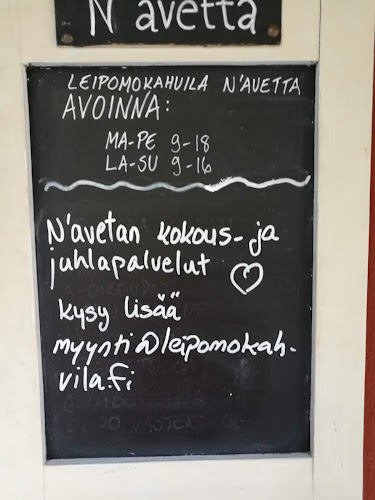 N'avetta
LEIPOMOKAHVILA N'AVETTA
AVOINNA:
MA-PE 9-18
LA-SU 9-16
N'avetan kokous- ja
juhlapalvelut ♡
kysy lisää
myynti@leipomokah-
vila.fi